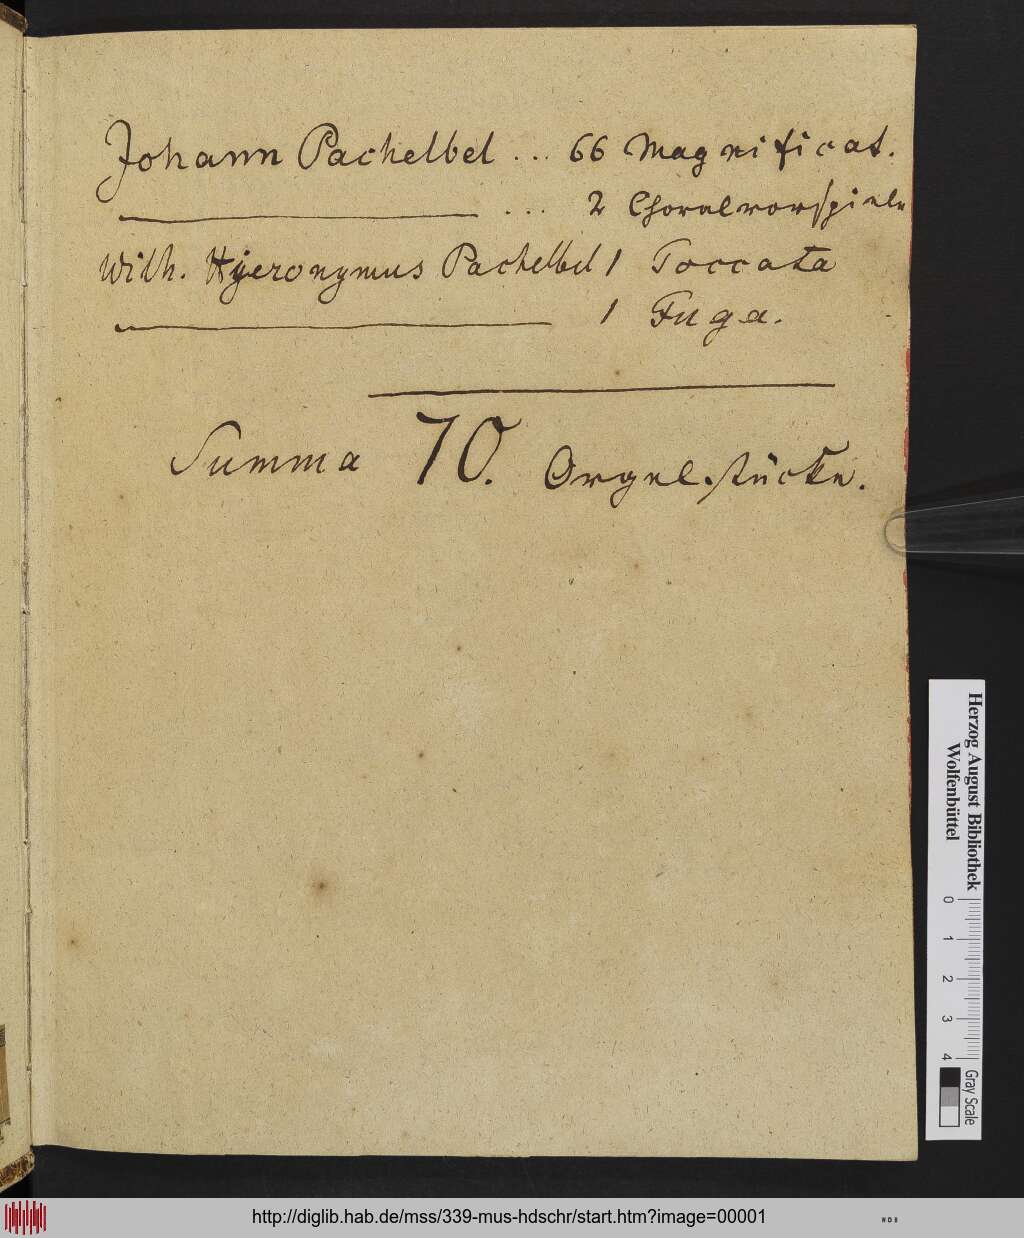 Johann Pachelbel ... 66 Magnificat.
——— ... 2 Choralvorspiele
Wilh. Hÿeronymus Pachelbel 1 Toccata
——— 1 Fuga.
Summa 70. Orgelstücke.
Herzog August Bibliothek
Wolfenbüttel
0 1 2 3 4
Gray Scale
http://diglib.hab.de/mss/339-mus-hdschr/start.htm?image=00001